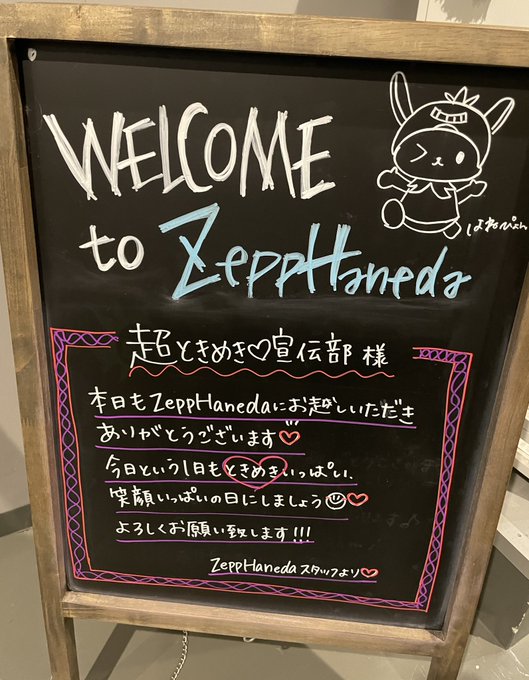 WELCOME
to ZeppHaneda
はねぴょん
超ときめき♡宣伝部 様
本日もZeppHanedaにお越しいただき
ありがとうございます♡
今日という1日もときめきいっぱい、
笑顔いっぱいの日にしましょう☺♡
よろしくお願い致します!!!
ZeppHaneda スタッフより♡